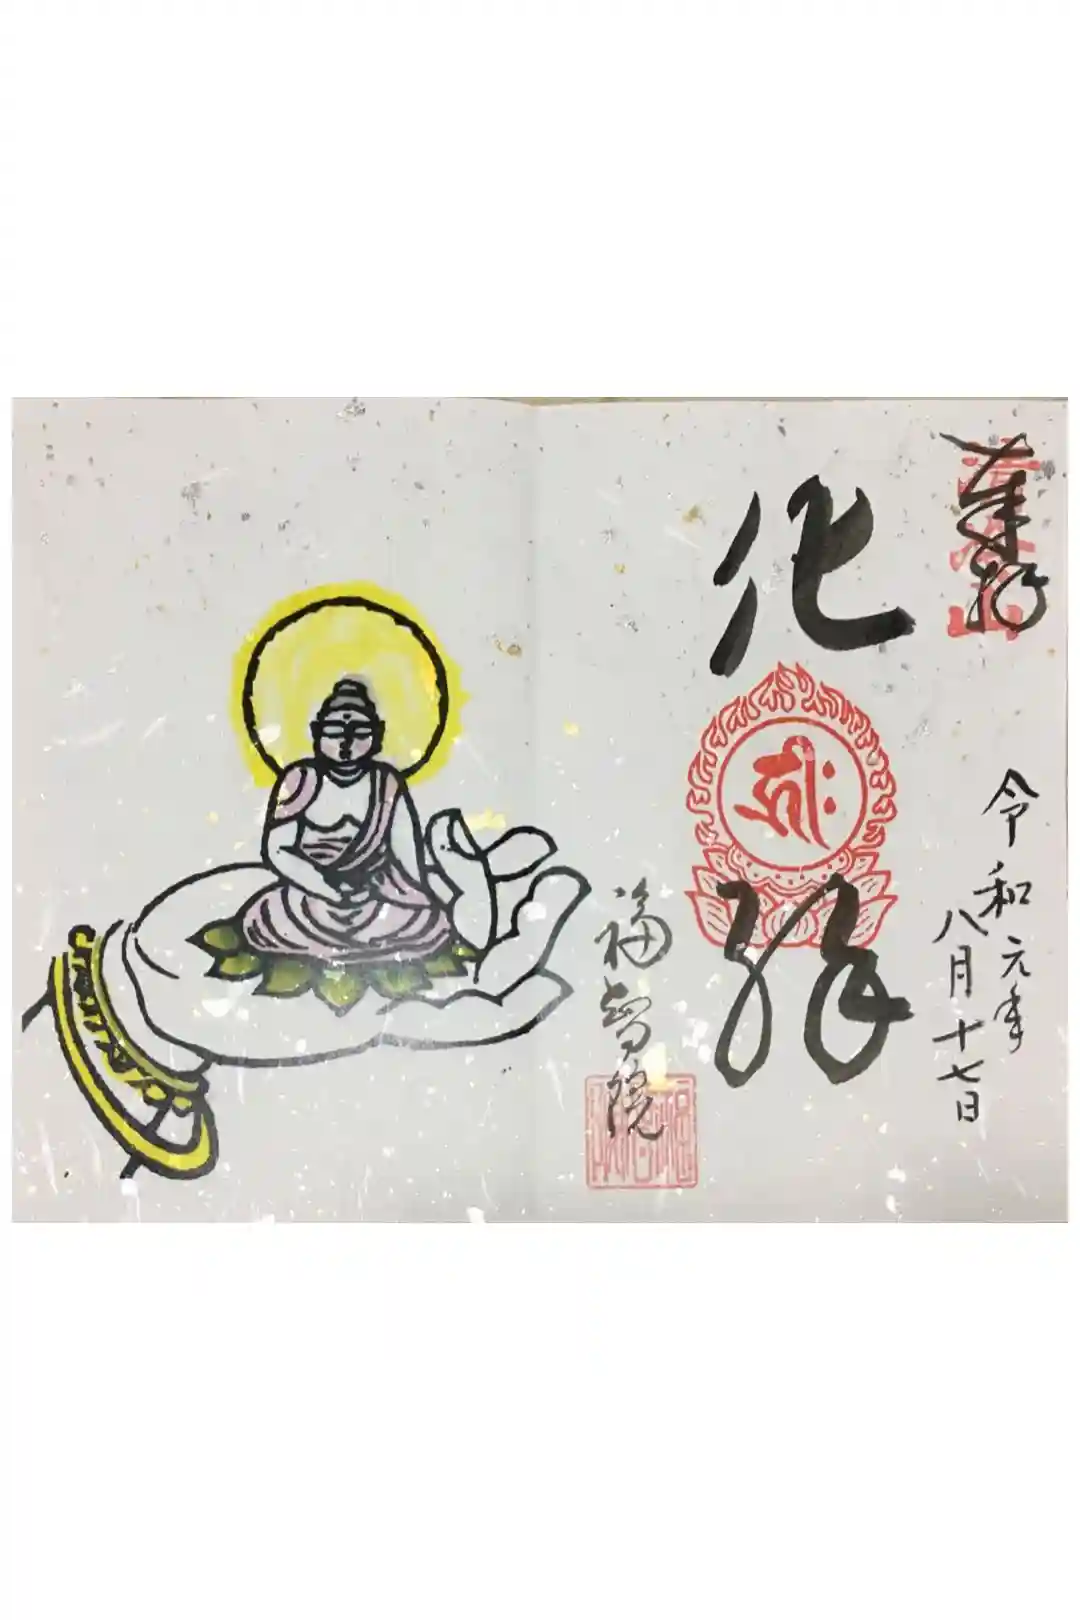 奉拝
令和元年
八月十七日
化
福智院